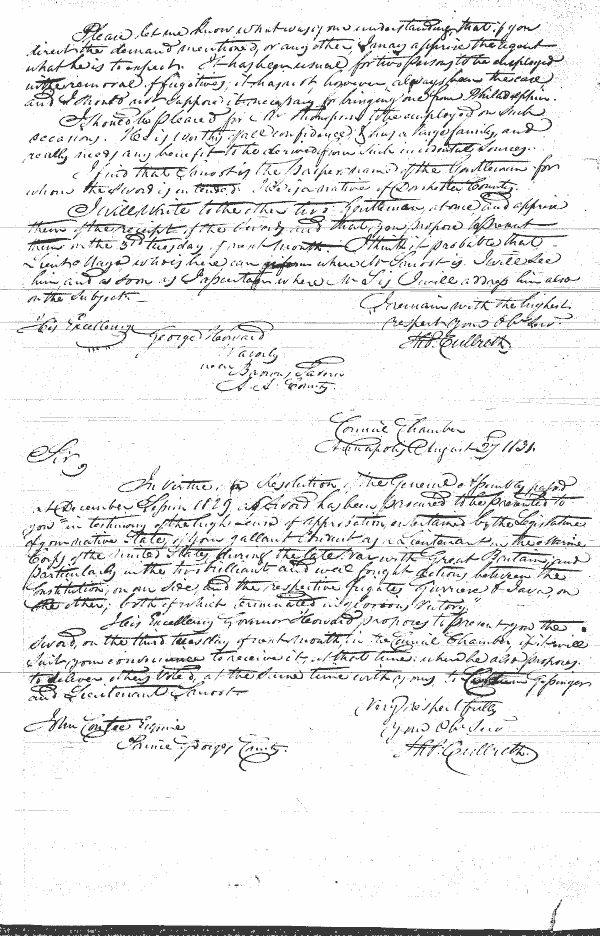 Please let me know what was your understanding, that if you
direct the demand mentioned, or any other, I may apprise the agent
what he is to expect. It has been usual for two persons to be employed
in the removal of fugitives; it has not however, always been the case
and I should not suppose it necessary for bringing one from Philadelphia.
I should be pleased for Mr Thompson to be employed on such
occasions. He is worthy of all confidence, & has a large family, and
really needs any benefit to be derived from such incidental sources.
I find that is the proper name of the Gentleman for
whom the Sword is intended. He is a native of Dorchester County.
I will write to the other two Gentlemen, at once, and apprise
them of the receipt of the swords, and that you propose to present
them on the 3rd Tuesday of next month. I think it probable that
Lieut Mayo who is here can inform where Mr is. I will see
him, and as soon as I ascertain where Mr S is I will address him also
on the subject.
I remain with the highest
respect your Obt Servt
His Excellency
George Howard
Th. Culbreth
Waverly
near
Tavern
A. A. County
Council Chamber
Annapolis August 27 1831
Sir,
In virtue of a Resolution of the General Assembly passed
at December Session 1829, a Sword has been procured to be presented to
you "in testimony of the high sense of approbation entertained by the Legislature
of your native State, of your gallant conduct as a Lieutenant in the Marine
Corps of the United States, during the late War with Great Britain, and
particularly in the two brilliant and well fought actions between the
Constitution, on our side, and the respective frigates Guerriere & Java, on
the other; both of which terminated in glorious Victory"
His Excellency Governor Howard proposes to present you the
sword, on the third tuesday of next month, in the Council Chamber, if it will
suit your convenience to receive it, at that time: when he also proposes
to deliver others voted, at the same time with yours to Gessinger
and Lieutenant
Very respectfully
John Contee Esquire
Your Obt Servt
Prince George's County
Th. Culbreth